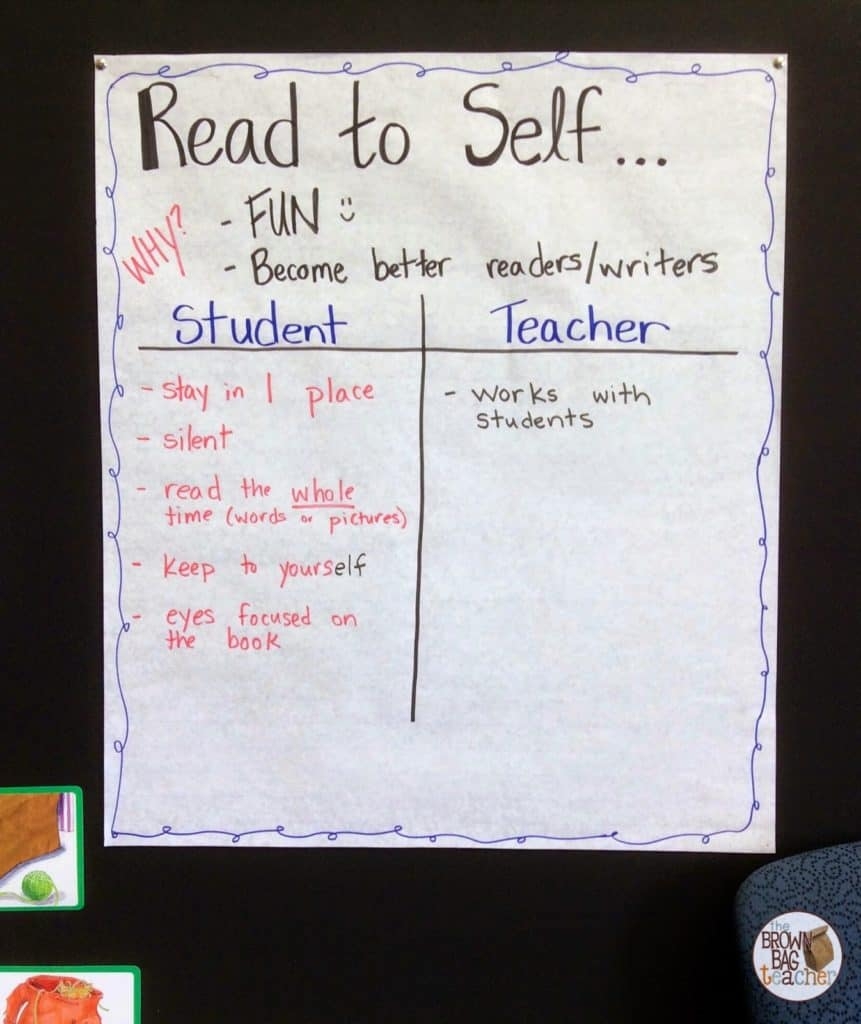 Read to Self...
WHY?
- FUN
- Become better readers/writers
Student
- stay in 1 place
- silent
- read the whole
time (words or pictures)
- keep to yourself
- eyes focused on
the book
Teacher
- works with
students
the
BROWN
BAG
teacher